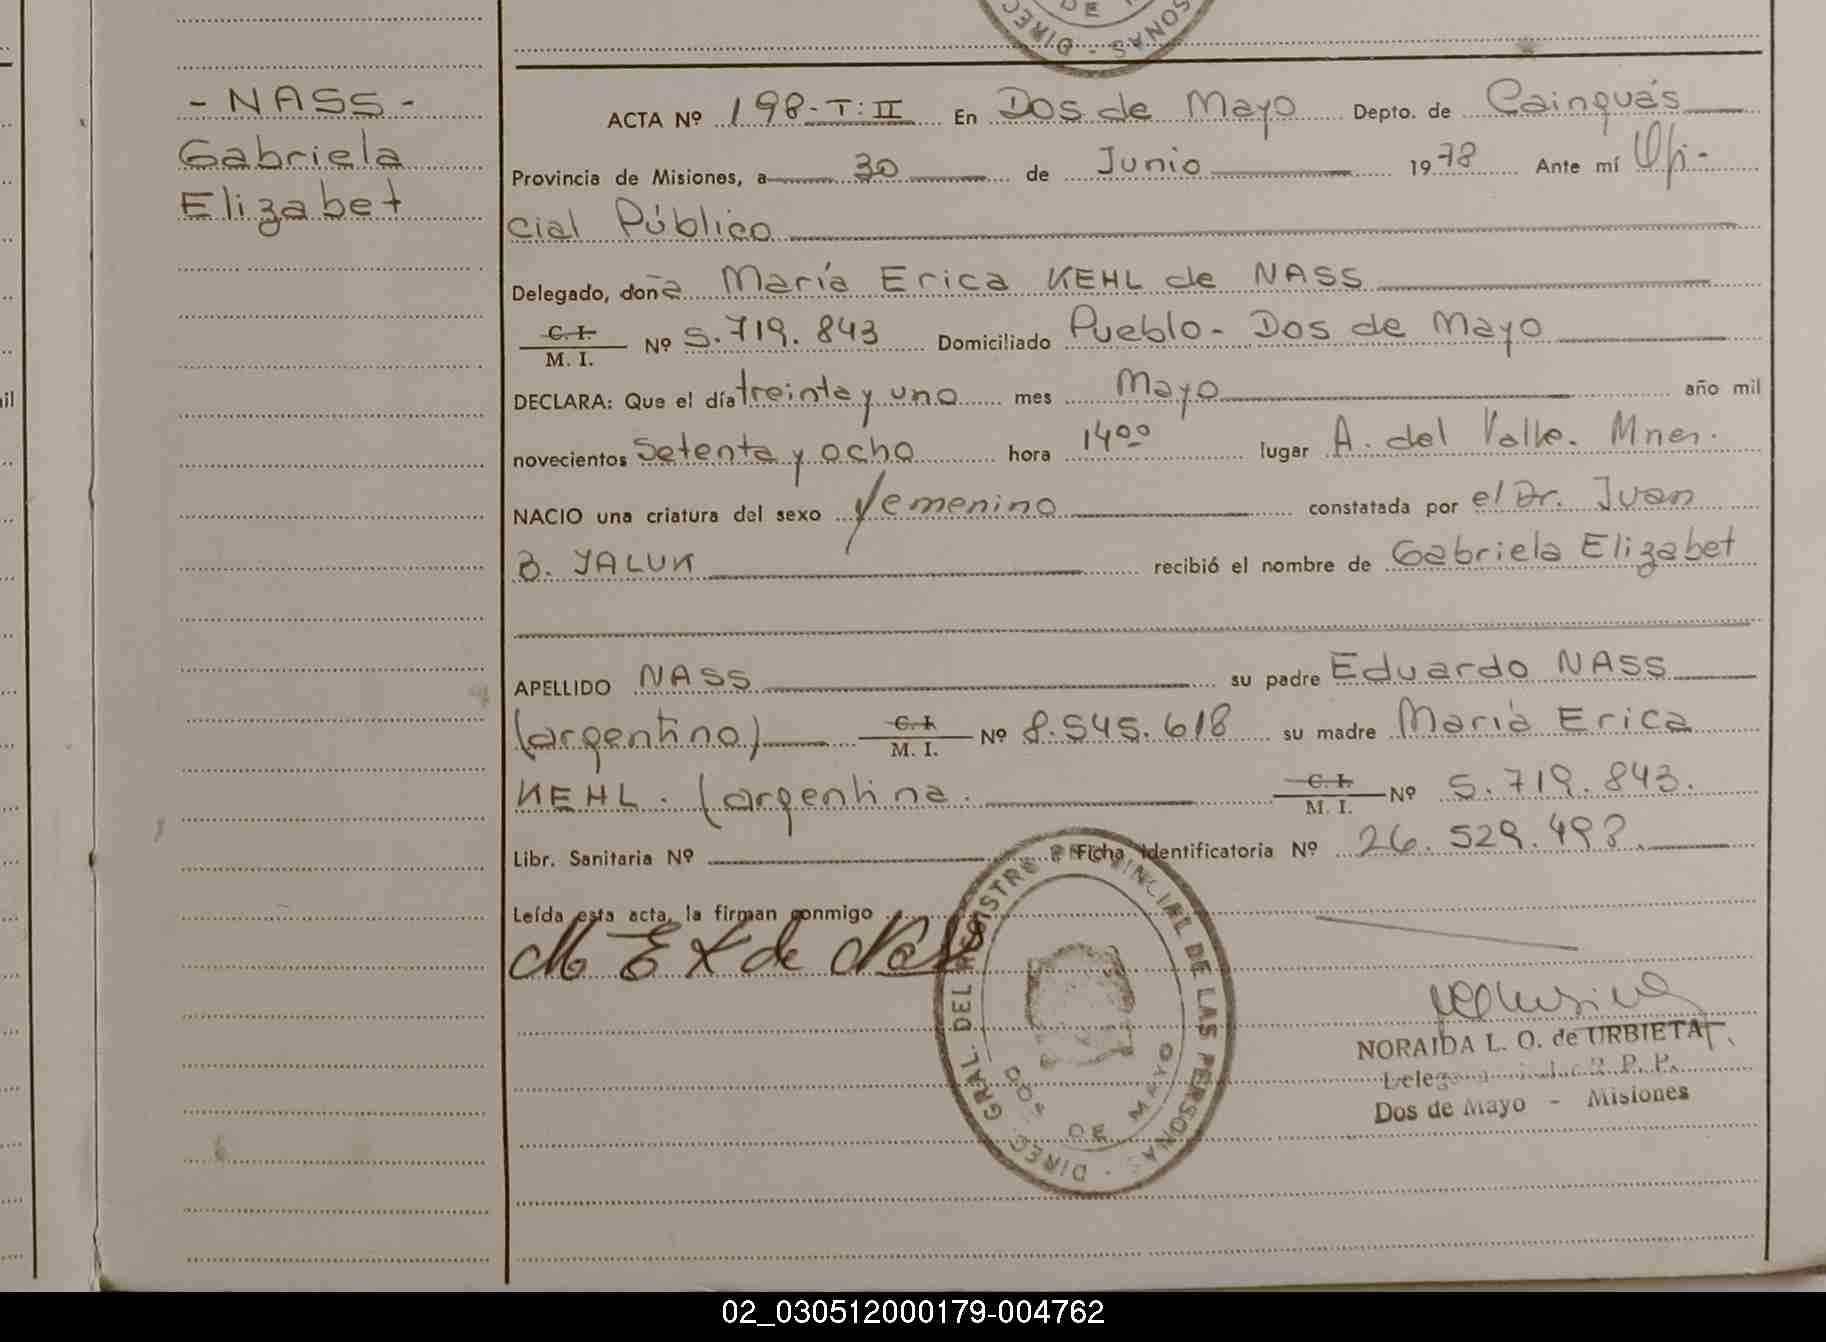 DE
DIREC
SONAS
- NASS -
Gabriela
Elizabet
ACTA Nº 198-T:II En Dos de Mayo Depto. de Cainguás
Provincia de Misiones, a 30 de Junio 1978 Ante mí Ofi-
cial Público
Delegado, doña María Erica KEHL de NASS
C. I.
M. I. Nº 5.719.843 Domiciliado Pueblo - Dos de Mayo
DECLARA: Que el día treinta y uno mes Mayo año mil
novecientos setenta y ocho hora 14⁰⁰ lugar A. del Valle. Mnes.
NACIO una criatura del sexo femenino constatada por el Dr. Juan
B. YALUK recibió el nombre de Gabriela Elizabet
APELLIDO NASS su padre Eduardo NASS
(argentino) C. I. M. I. Nº 8.545.618 su madre María Erica
KEHL. (argentina. C. I. M. I. Nº 5.719.843.
Libr. Sanitaria Nº Ficha Identificatoria Nº 26.529.493.
Leída esta acta, la firman conmigo
M E K de Nass
DIREC. GRAL. DEL REGISTRO PROVINCIAL DE LAS PERSONAS
DOS DE MAYO
NORAIDA L. O. de URBIETA
Dos de Mayo - Misiones
02_030512000179-004762